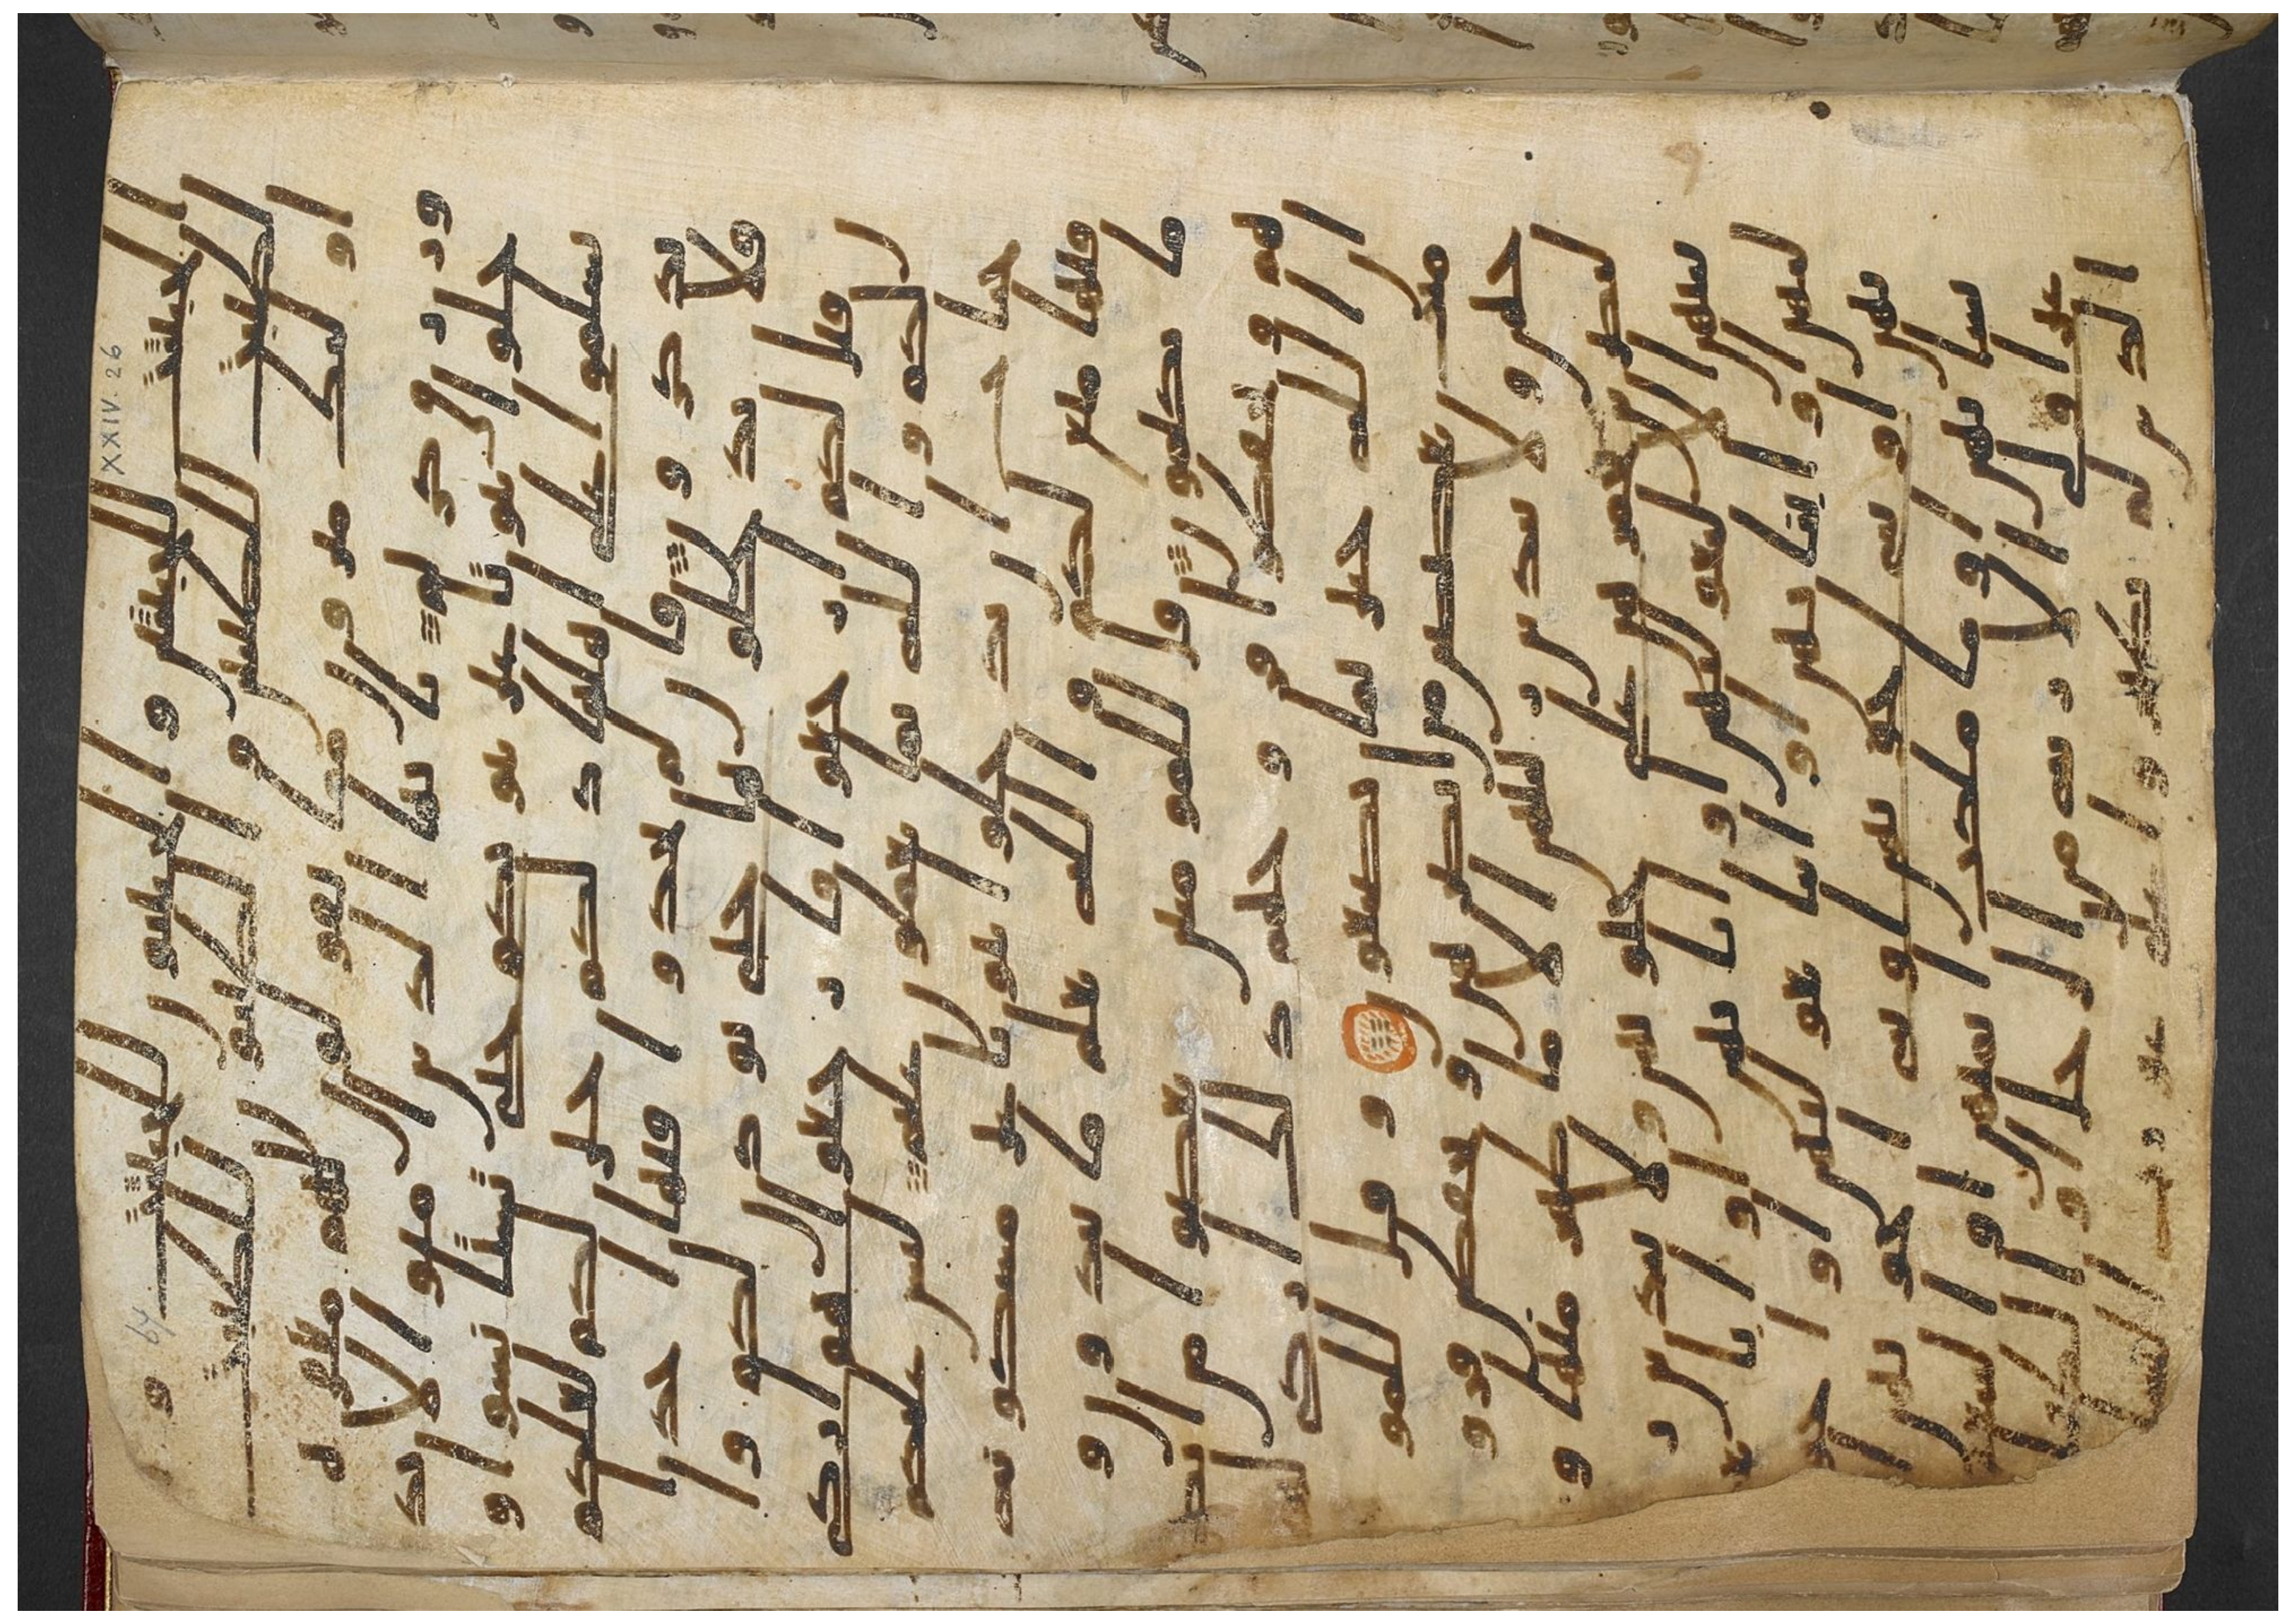 الخبيثت للخبيثين والخبيثون للخبيثت و
الطيبت للطيبين والطيبون للطيبت
اولىك مبرون مما يقولون لهم مغفره
ورزق كريم يايها الذين امنوا لا تد
خلوا بيوتا غير بيوتكم حتى تستانسوا و
تسلموا على اهلها ذلكم خير لكم لعلكم
تذكرون فان لم تجدوا فيها احدا
فلا تدخلوها حتى يوذن لكم وا
ن قيل لكم ارجعوا فارجعوا هو ازكى
لكم والله بما تعملون عليم ليس عليكم
جناح ان تدخلوا بيوتا غير مسكونه
فيها متاع لكم والله يعلم ما تبدون و
ما تكتمون قل للمومنين يغضوا من ابصر
هم ويحفظوا فروجهم ذلك ازكى لهم
ان الله خبير بما يصنعون وقل للمو
منت يغضضن من ابصرهن ويحفظن فرو
جهن ولا يبدين زينتهن الا ما ظهر منها و
ليضربن بخمرهن على جيوبهن ولا يبدين ز
ينتهن الا لبعولتهن او اباىهن او ابا
بعولتهن او ابناىهن او ابنا بعو
لتهن او اخونهن او بنى اخونهن
او بنى اخوتهن او نساىهن او ما ملكت ايمنهن
او التبعين غير اولى الاربه من الرجال او الطفل
الذين لم يظهروا على عورت النسا
XXIV. 26